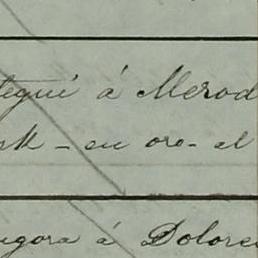 tegui á Merod
- en oro - al
ugora á Dolore